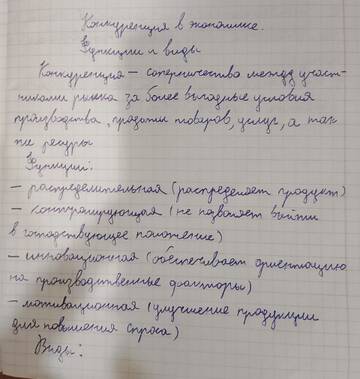 Конкуренция в экономике.
Функции и виды
Конкуренция – соперничество между участ-
никами рынка за более выгодные условия
производства, продажи товаров, услуг, а так
же ресурсы
Функции:
– распределительная (распределяет продукт)
– контролирующая (не позволяет выйти
в господствующее положение)
– инновационная (обеспечивает ориентацию
на производственные факторы)
– мотивационная (улучшение продукции
для повышения спроса)
Виды: